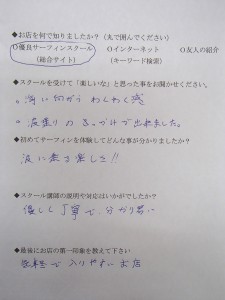 ◆お店を何で知りましたか？（丸で囲んでください）
○優良サーフィンスクール　○インターネット　○友人の紹介
（総合サイト）　（キーワード検索）
◆スクールを受けて「楽しいな」と思った事をお聞かせください。
。海に向かう わくわく感
。波乗りの 出来ました。
◆初めてサーフィンを体験してどんな事が分かりましたか？
波に乗る楽しさ!!
◆スクール講師の説明や対応はいかがでしたか？
優しく丁寧で、分かり易い
◆最後にお店の第一印象を教えて下さい
気軽で入りやすいお店